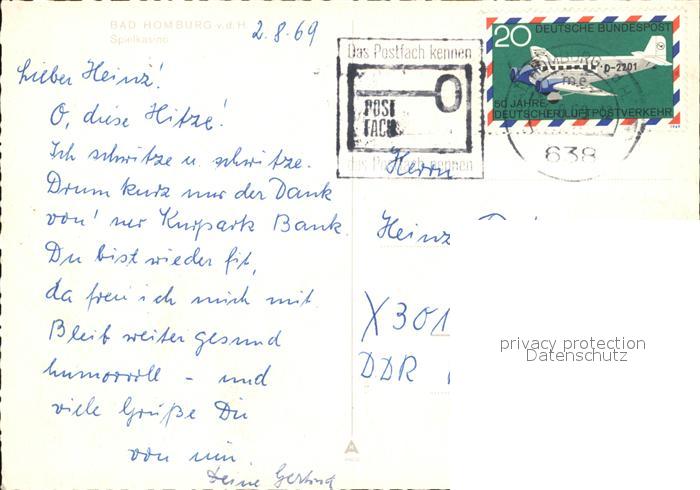 BAD HOMBURG v.d.H.
Spielkasino
2.8.69
Lieber Heinz!
O, diese Hitze!
Ich schwitze u. schwitze.
Drum kurz nur der Dank
von' ner Kurpark Bank.
Du bist wieder fit,
da freu ich mich mit.
Bleib weiter gesund
humorvoll – und
viele Grüße Dir
von mir
Deine Gertrud
Das Postfach kennen
POST
FACH
das Postfach nennen
20 DEUTSCHE BUNDESPOST
D-2201
50 JAHRE
DEUTSCHER LUFTPOSTVERKEHR
1969
638
Herrn
Heinz
X301
DDR
privacy protection
Datenschutz